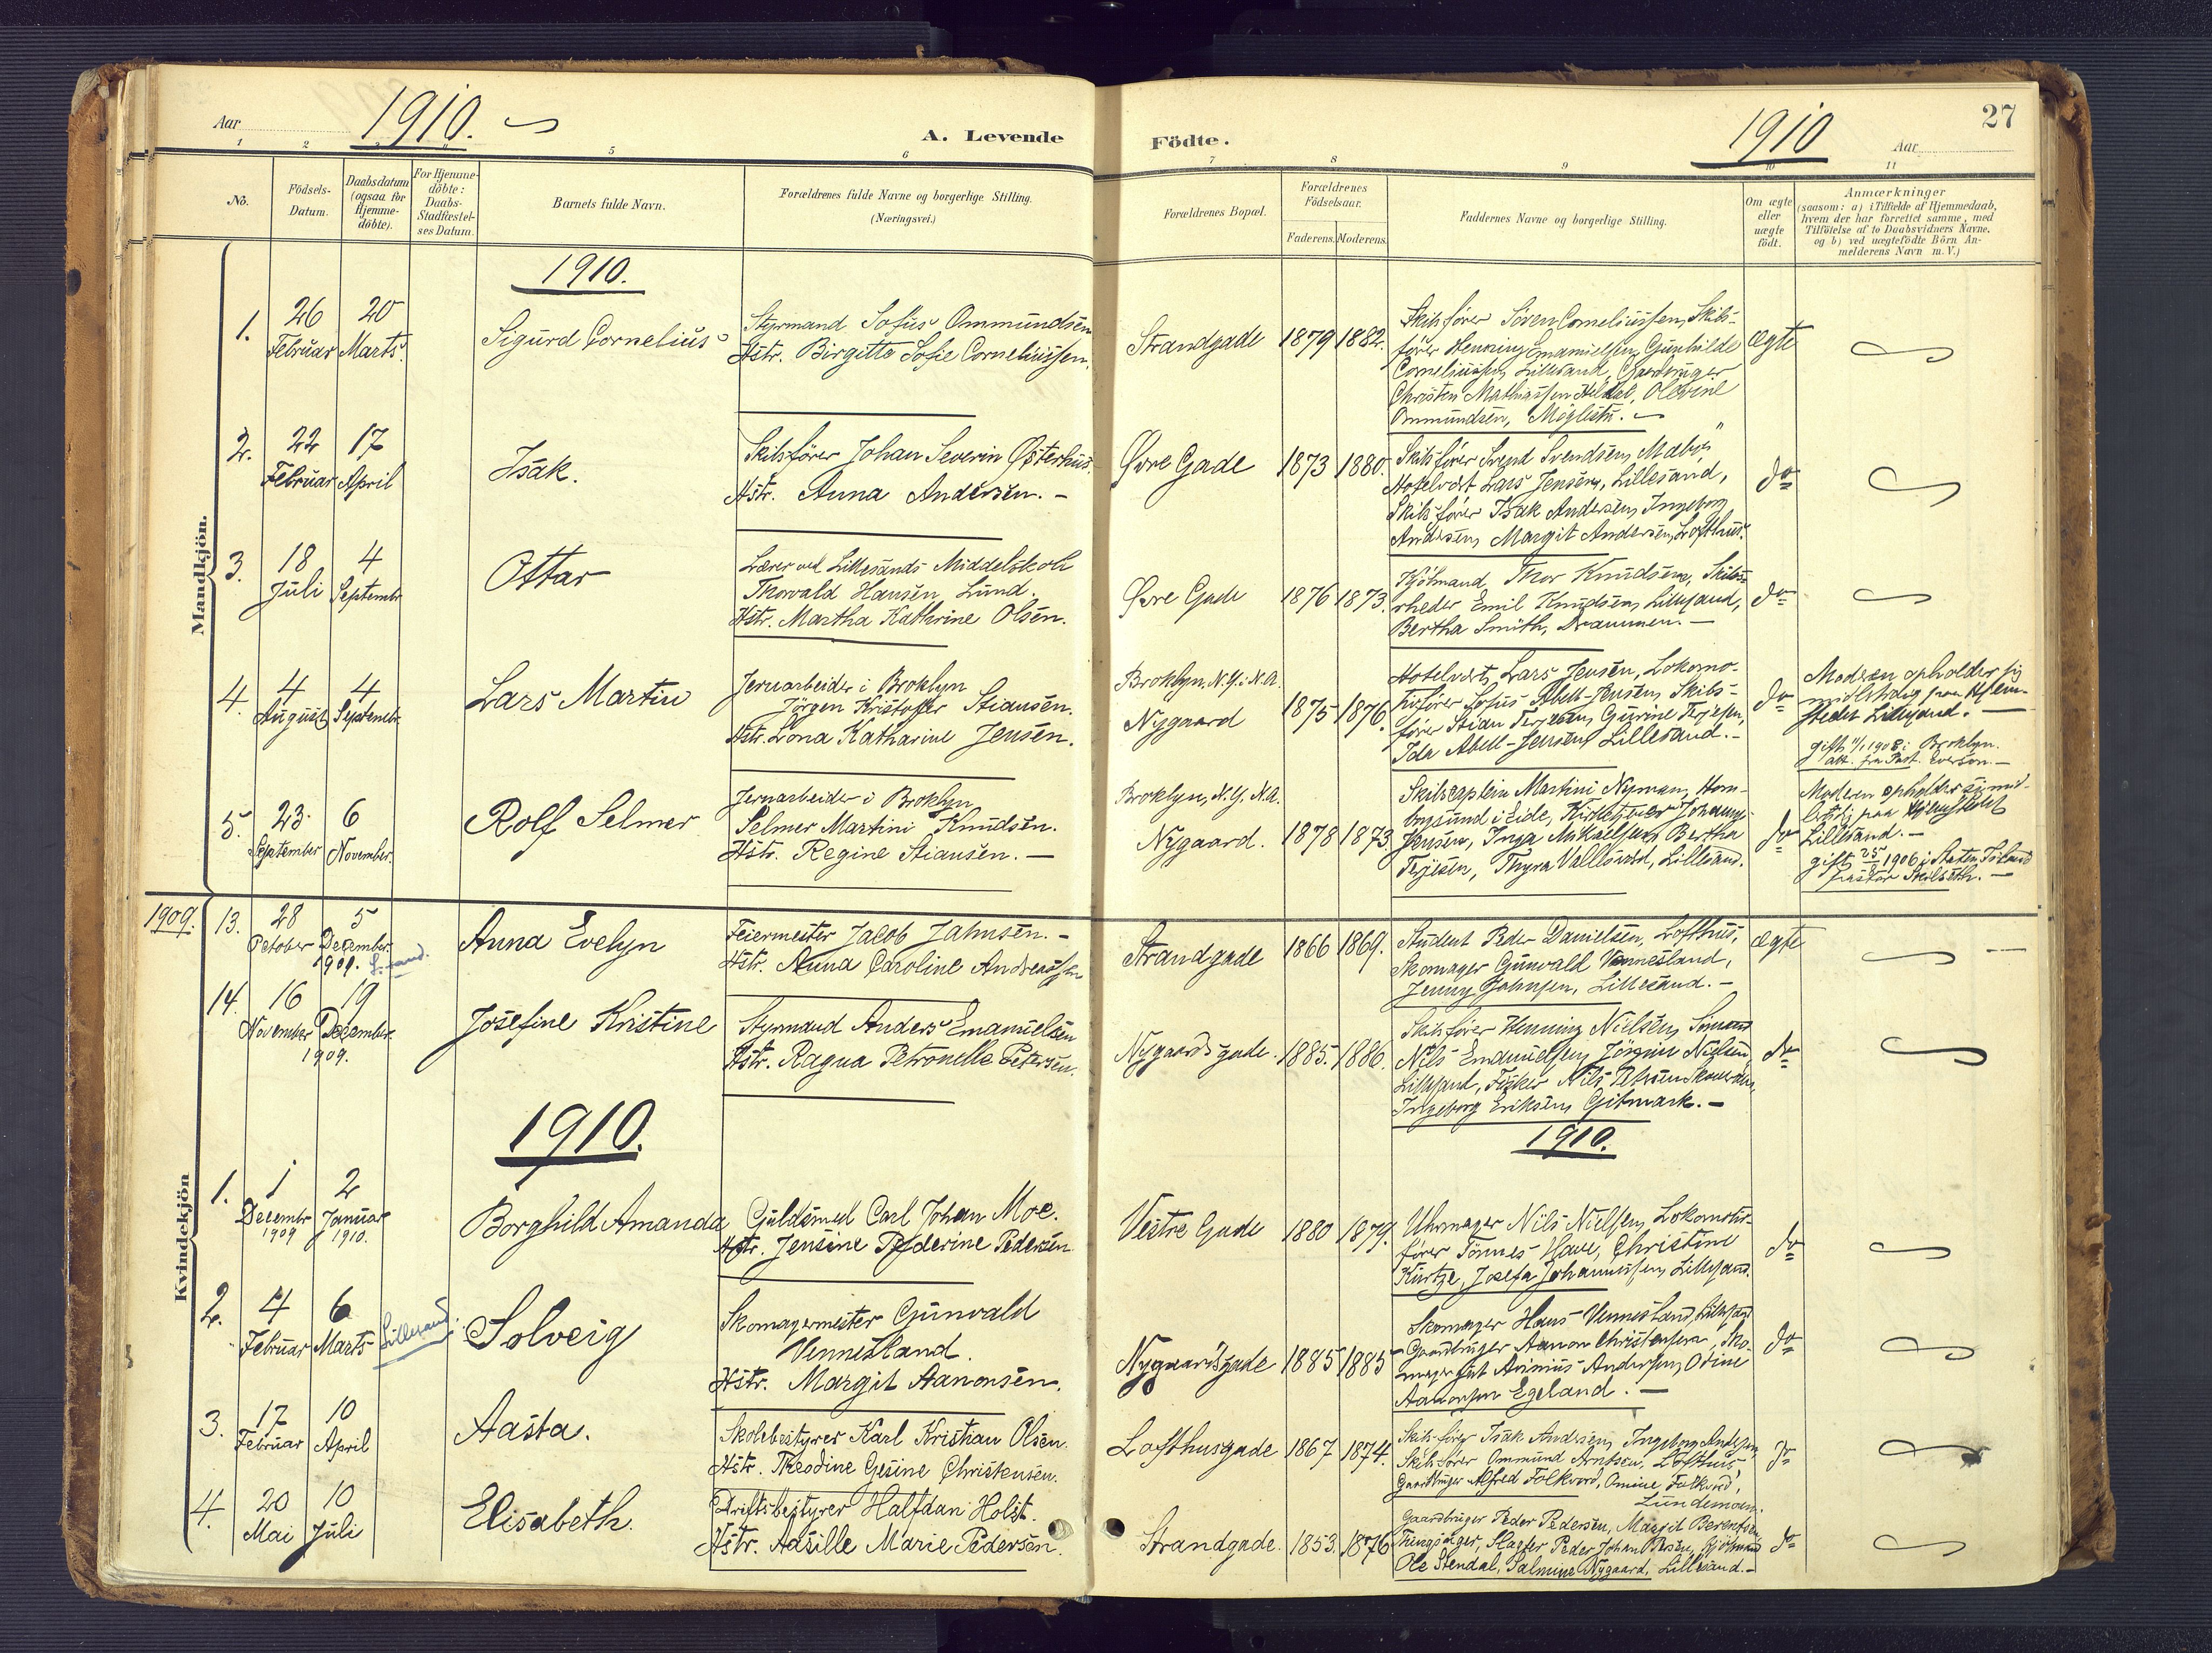 Aar 1910.
A. Levende
Födte.
1910
Aar
27
1 2 5 6 7 8 9 10 11
No.
Födsels-
Datum.
Daabsdatum
(ogsaa for
Hjemme-
döbte).
For Hjemme-
döbte:
Daabs-
Stadfæstel-
ses Datum.
Barnets fulde Navn.
Forældrenes fulde Navne og borgerlige Stilling.
(Næringsvei.)
Forældrenes Bopæl.
Forældrenes
Födselsaar.
Faderens. Moderens.
Faddernes Navne og borgerlige Stilling.
Om ægte
eller
uægte
födt.
Anmærkninger
(saasom: a) i Tilfælde af Hjemmedaab,
hvem der har forrettet samme, med
Tilföielse af to Daabsvidners Navne,
og b) ved uægtefödte Börn An-
melderens Navn m.V.)
Mandkjön.
1910.
1.
26
Februar
20
Marts.
Sigurd Cornelius
Styrmand Sofus Ommundsen
Hstr. Birgitte Sofie Corneliussen.
Strandgade
1879
1882.
Skibsfører Søren Corneliussen, Skibs-
fører Henning Emanuelsen, Gunhilde
Corneliussen, Lillesand, Gaardbruger
Christen Mathiassen Heldal, Olevine
Ommundsen, Møglestu.
ægte
2.
22
Februar
17
April
Isak.
Skibsfører Johan Severin Østerhus.
Hstr. Anna Andersen. -
Øvre Gade
1873
1880.
Skibsfører Svend Svendsen,
Hotelvert Lars Jensen, Lillesand,
Skibsfører Isak Andersen, Ingeborg
Andersen, Margit Andersen, Lofthus.
do
3.
18
Juli
4
Septembr
Ottar
Lærer ved Lillesands Middelskole
Thorvald Hansen Lund.
Hstr. Martha Kathrine Olsen.
Øvre Gade
1876
1873.
Kjøbmand Thor Knudsen, Skibs-
rheder Emil Knudsen, Lillesand,
Bertha Smith, Drammen. -
do
4.
4
August
4
Septembr.
Lars Martin
Jernarbeider i Broklyn
Jörgen Kristoffer Stiansen.
Hstr. Lona Katharine Jensen.
Broklyn, N.Y. i N.A.
Nygaard
1875
1876.
Hotelvert Lars Jensen, Lokomo-
tivfører Sofus Abell-Jensen, Skibs-
fører Stian Terjesen, Gurine Terjesen,
Ida Abell-Jensen, Lillesand. -
do
Moderen opholder sig
midlertidig paa Hjem-
stedet Lillesand. -
1908 i Broklyn.
att. fra Past. Everson. -
5.
23.
September
6
November.
Rolf Selmer
Jernarbeider i Broklyn
Selmer Martini Knudsen.
Hstr. Regine Stiansen. -
Broklyn, N.Y. N.A.
Nygaard.
1878
1873.
Skibscaptein Martini Nyman, Hom-
borgsund i Eide, Johannes
Jensen, Inga Mikaelsen, Bertha
Terjesen, Thyra Vallesværd, Lillesand.
do
Moderen opholder sig mid-
lertidig paa Hjemstedet
Lillesand. -
gift 1906 i Staten Island
pastor -
Kvindekjön
1909.
13.
28
October
5
December.
1909.
Anna Evelyn
Feiermester Jacob Jahnsen. -
Hstr. Anna Caroline Andreassen
Strandgade
1866
1869.
Student Peder Danielsen, Lofthus,
Skomager Gunvald Vennesland,
Jenny Jahnsen, Lillesand. -
ægte
14.
16
November
19
December.
1909.
Josefine Kristine
Styrmand Anders Emanuelsen
Hstr. Ragna Petronelle Petersen.
Nygaardsgade.
1885.
1886.
Skibsfører Henning Nielsen, Sömand
Nils Emanuelsen, Jörgine Nielsen
Lillesand, Fisker Nils Petersen
Ingeborg Eriksen, Gitmark. -
do
1910.
1910.
1.
1
Decembr
1909
2
Januar
1910.
Borghild Amanda
Guldsmed Carl Johan Moe.
Hstr. Jensine Pederine Pedersen
Vestre Gade
1880
1879.
Uhrmager Nils Nielsen, Lokomotiv-
fører Tönnes Have, Christine
Kurtze, Josefa Johannessen, Lillesand.
do
2.
4
Februar
6
Marts
Lillesand.
Solveig
Skomagermester Gunvald
Vennesland.
Hstr. Margit Aanonsen.
Nygaardsgade
1885
1885
Skomager Hans Vennesland, Lillesand
Gaardbruger Aanon Christensen, Sko-
mager Andersen, Otine
Aanonsen Egeland. -
do
3.
17
Februar
10
April
Aasta.
Skolebestyrer Karl Kristian Olsen.
Hstr. Theodine Gesine Christensen.
Lofthusgade
1867
1874.
Skibsfører Isak Andersen, Ingeborg Andersen,
Skibsfører Ommund Arntsen, Lofthus,
Gaardbruger Alfred Folkvord, Omine Folkvord,
Lundemoen.
do
4.
20
Mai
10
Juli
Elisabeth.
Driftsbestyrer Halfdan Holst.
Hstr. Aasille Marie Pedersen.
Strandgade.
1853.
1876
Gaardbruger Peder Pedersen, Margit Berentsen,
Tingsager, Slagter Peder Johan Kjøbmand
Ole Stendal, Salmine Nygaard, Lillesand. -
do